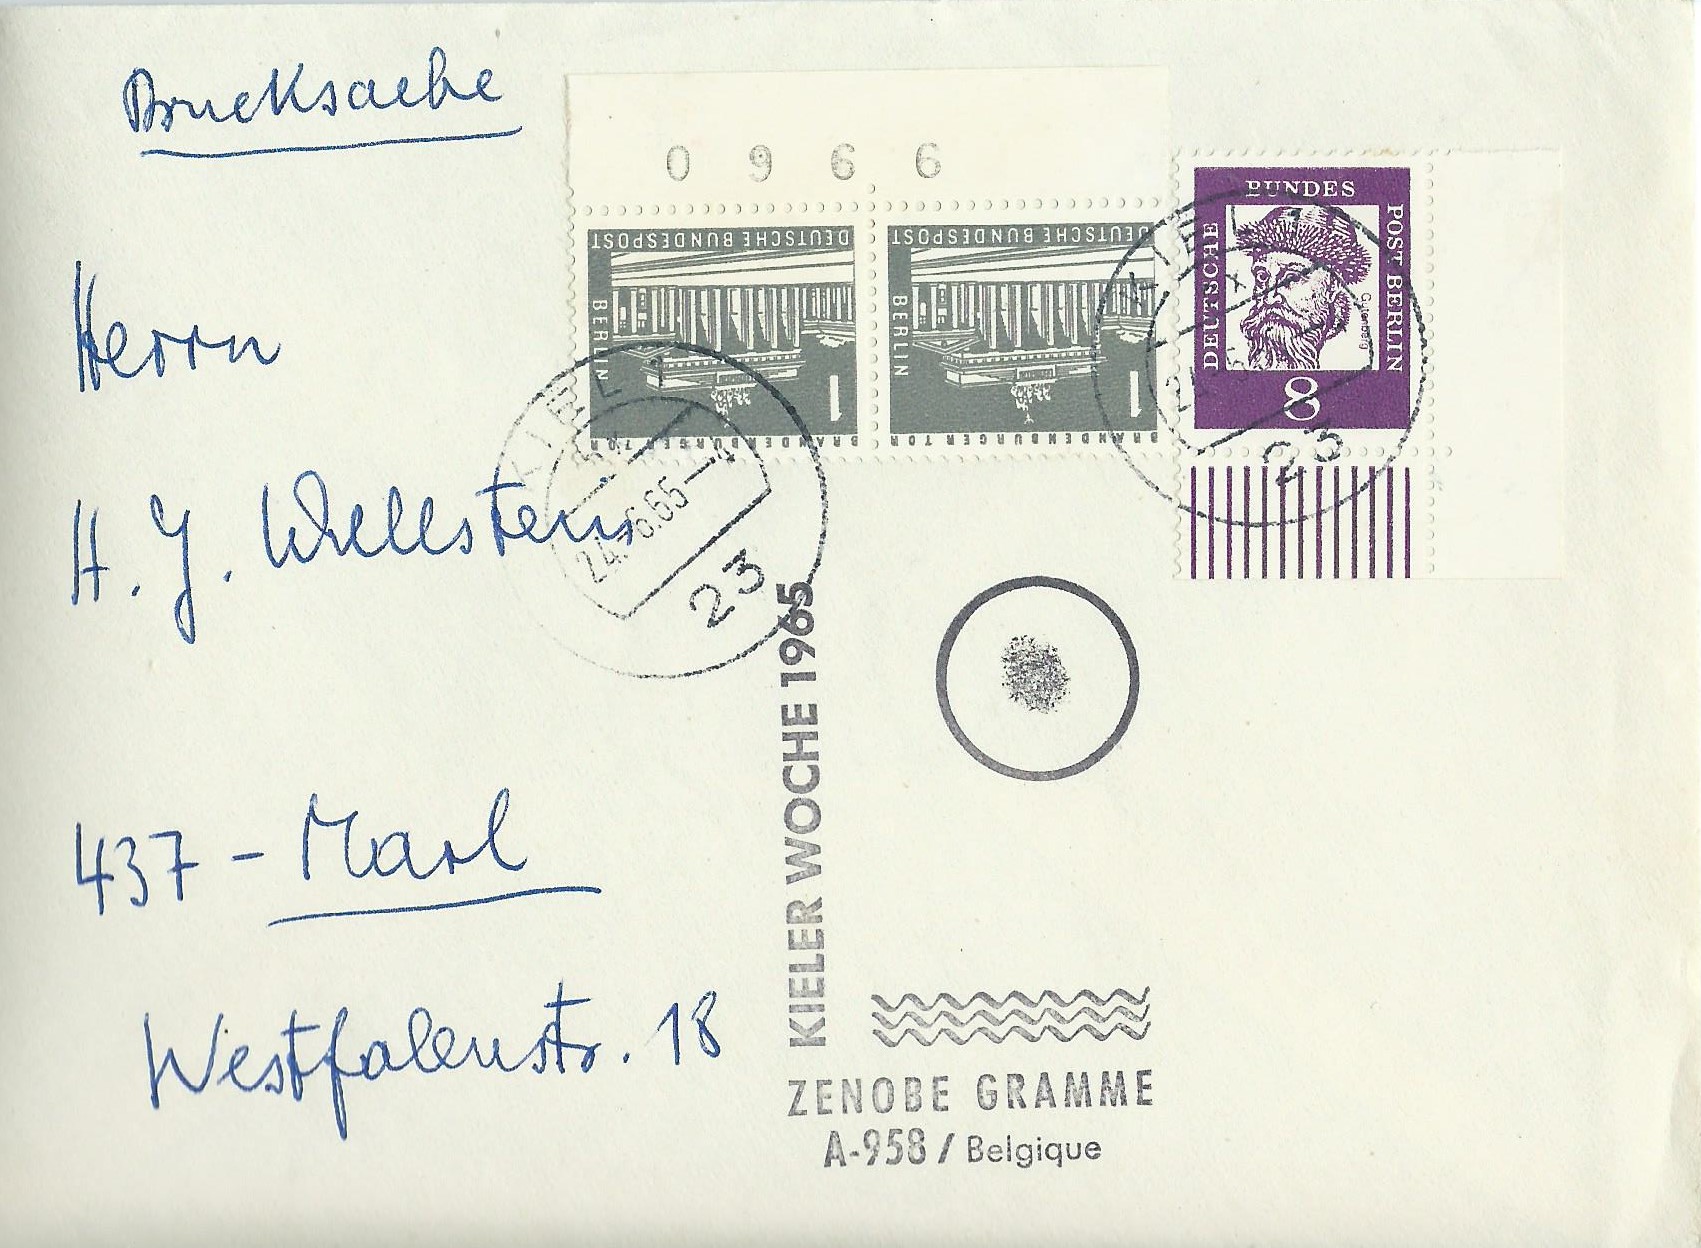 Drucksache
0966
DEUTSCHE BUNDESPOST
BERLIN
1
BRANDENBURGER TOR
DEUTSCHE BUNDESPOST
BERLIN
1
BRANDENBURGER TOR
DEUTSCHE BUNDESPOST BERLIN
Gutenberg
8
KIEL 1
23
Herrn
H. J. Wellstein
KIEL 1
24.-6.65-4
23
437 - Marl
Westfalenstr. 18
KIELER WOCHE 1965
ZENOBE GRAMME
A-958 / Belgique